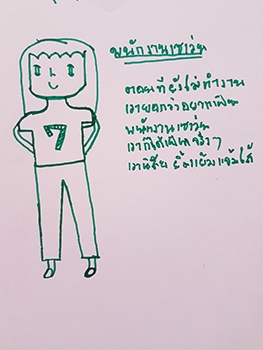 พนักงานเซเว่น
ตอนที่ยังไม่ทำงาน
เราบอกว่าอยากเป็น
พนักงานเซเว่น
เราก็ได้เป็นจริงๆ
เรานิสัย ยิ้มแย้มแจ่มใส
7